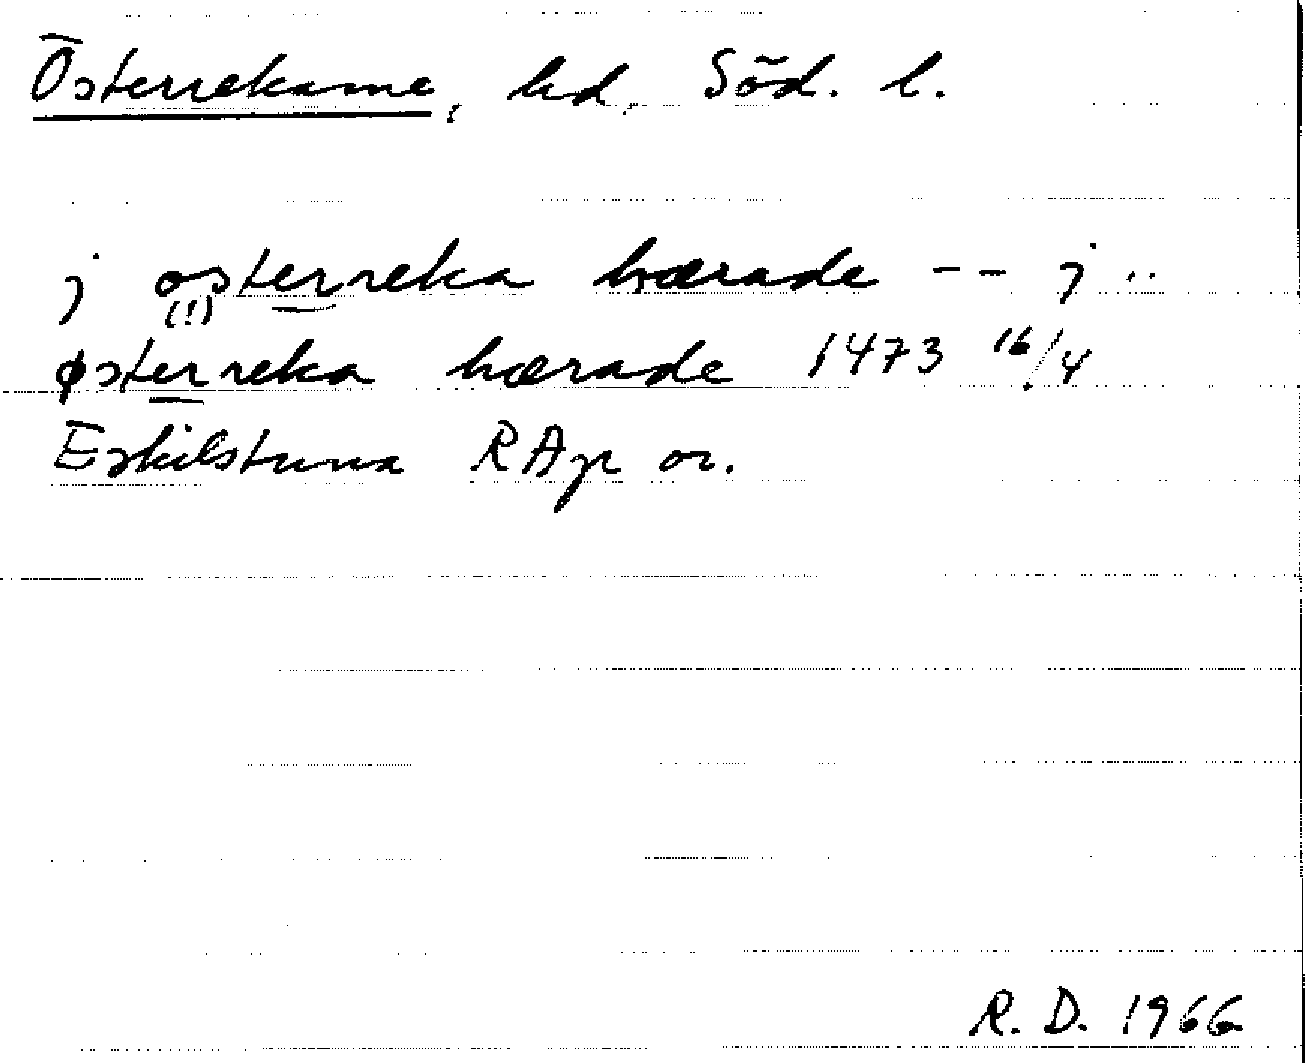 Österrekarne, hd, Söd. l.
j osterreka hærade -- j ..
(!)
østerreka hærade 1473 16/4
Eskilstuna RAp or.
R. D. 1966